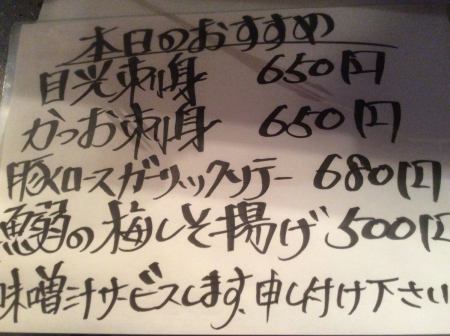 本日のおすすめ
目光刺身 650円
かつお刺身 650円
豚ロースガーリックソテー 680円
鰯の梅しそ揚げ 500円
味噌汁サービスします、申し付け下さい